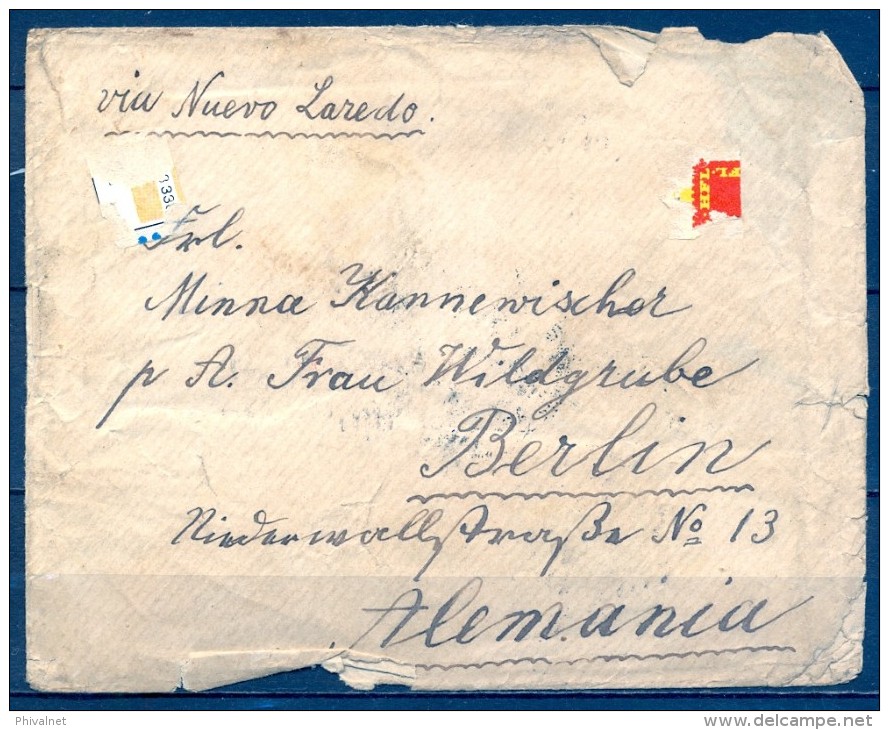 via Nuevo Laredo.
HFL
Frl.
Minna Kannewischer
p A. Frau Wildgrube
Berlin
Niederwallstraße No 13
Alemania
Phivalnet
delcampe.net